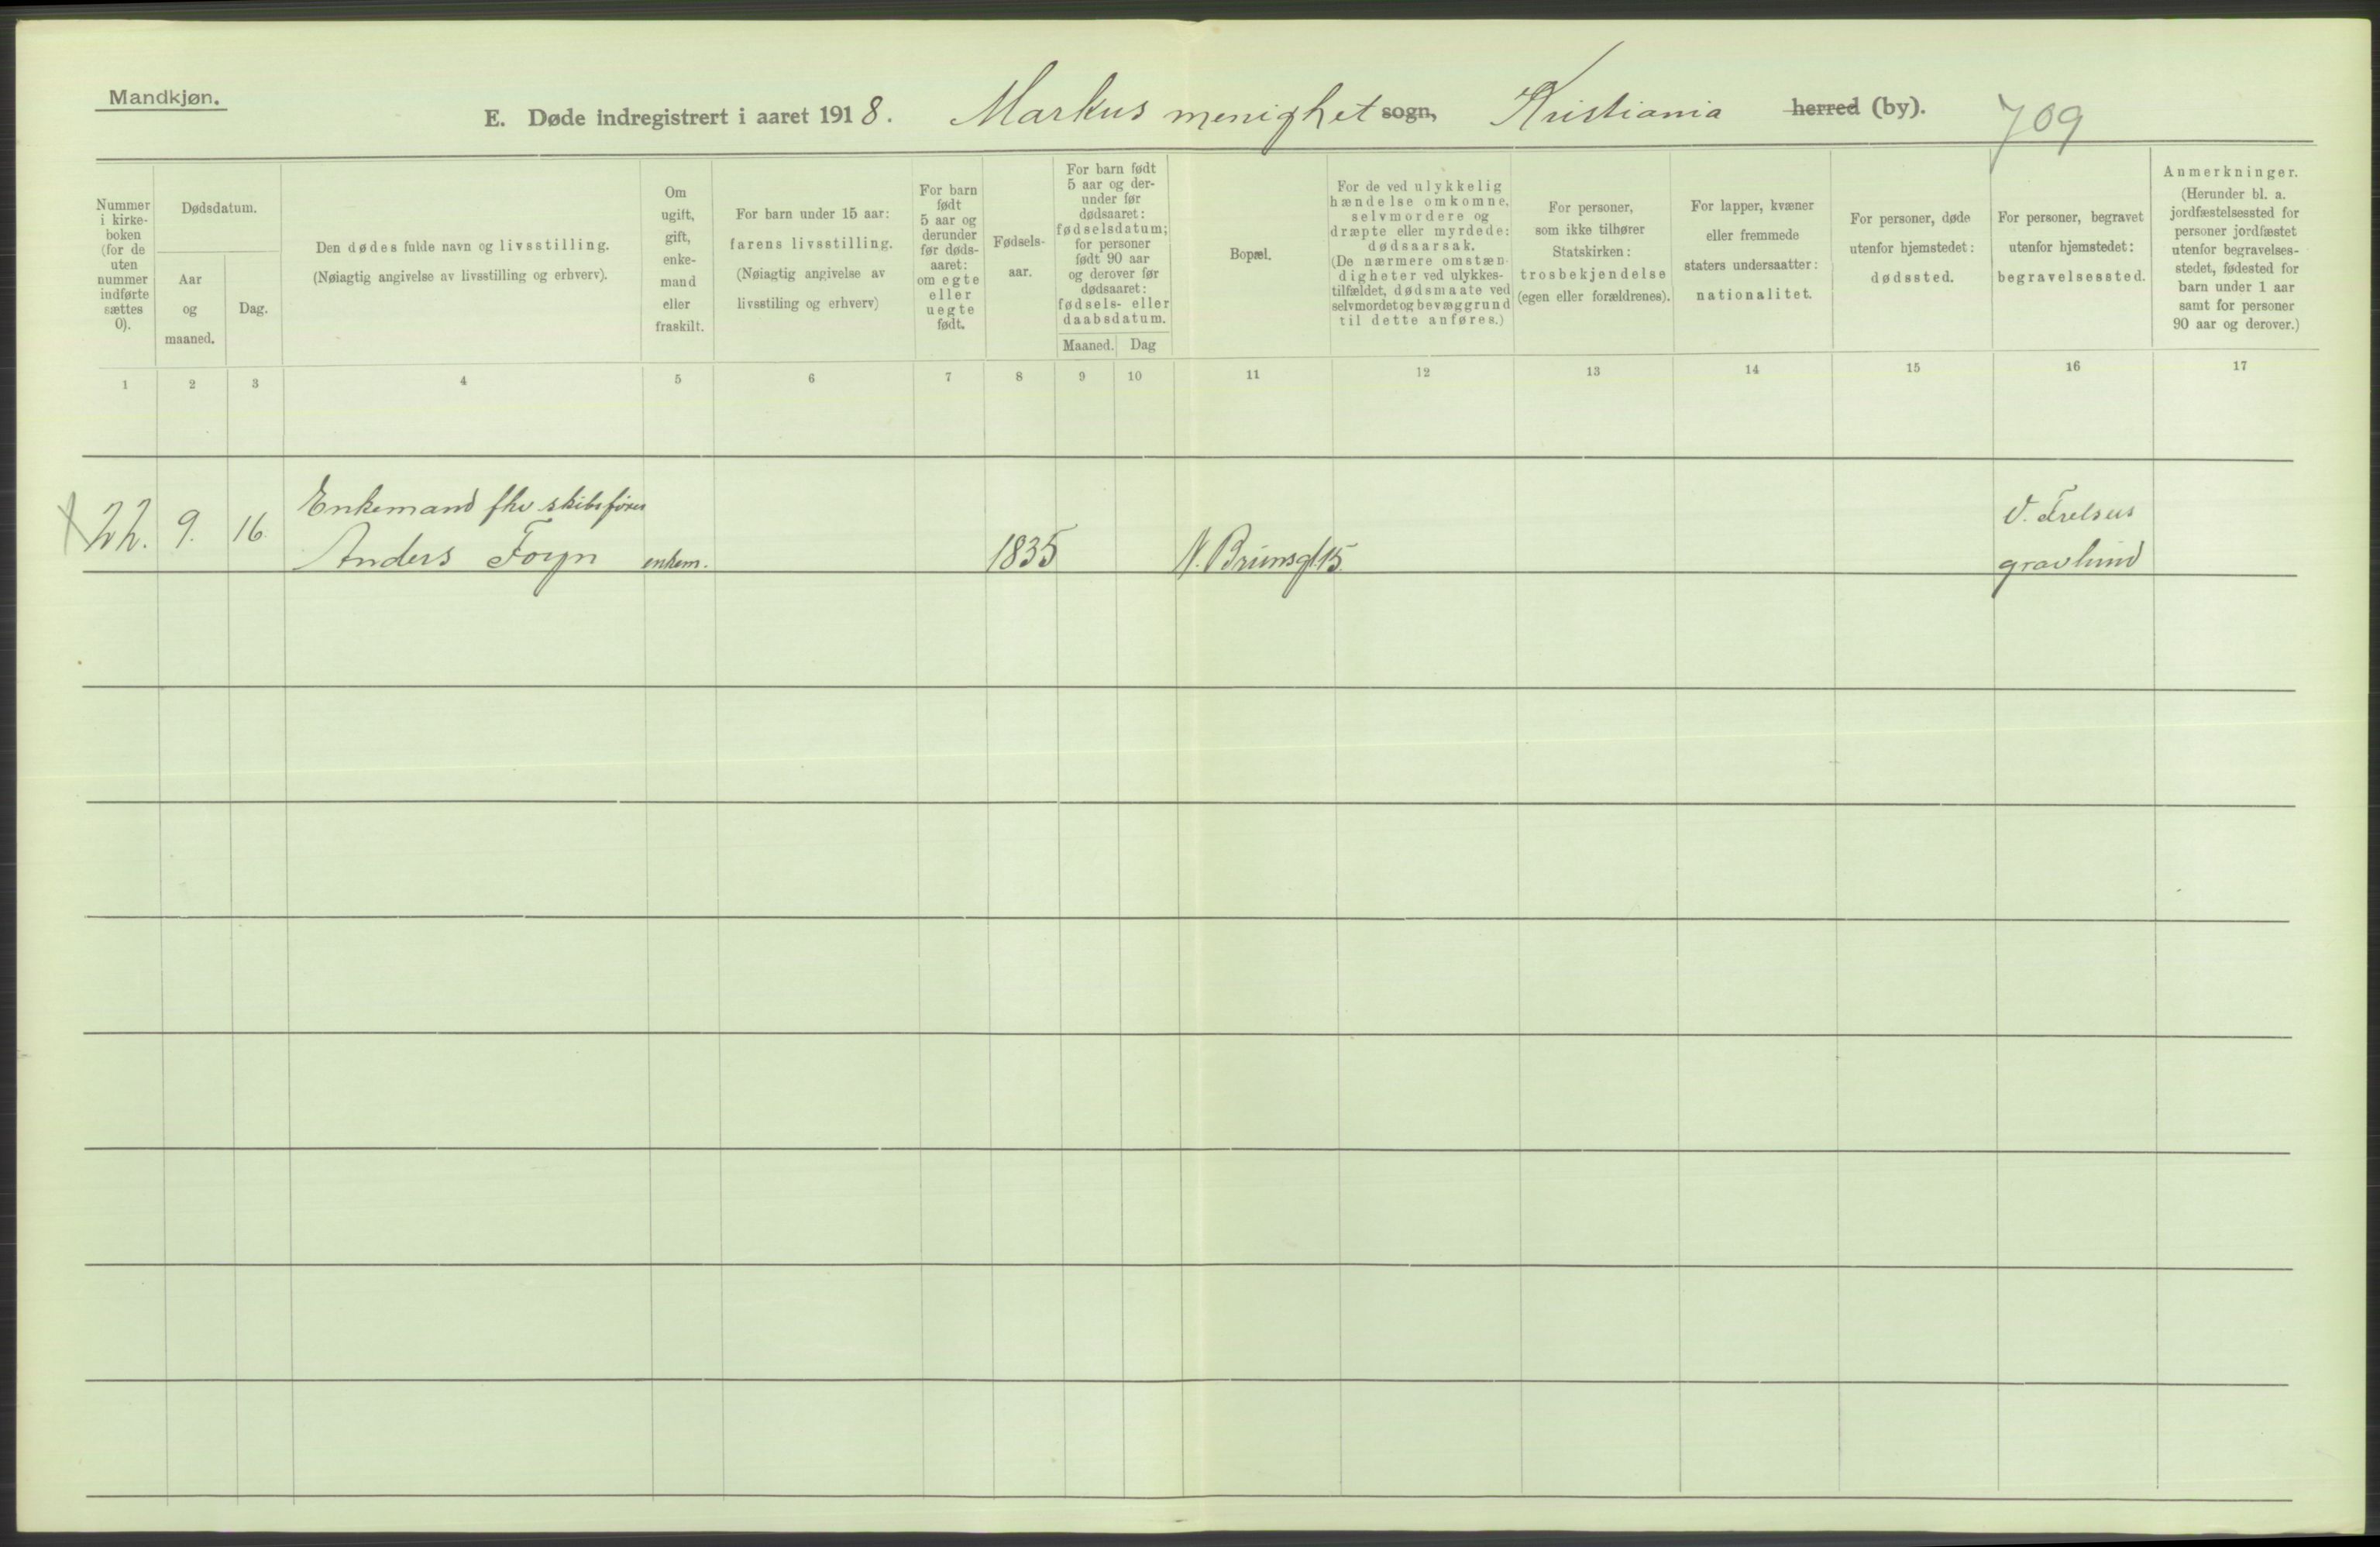 Mandkjøn.
E. Døde indregistrert i aaret 1918. Markus menighet sogn, Kristiania herred (by). 709
Nummer
i kirke-
boken
(for de
uten
nummer
indførte
sættes
0).
Dødsdatum.
Aar
og
maaned.
Dag.
Den dødes fulde navn og livsstilling.
(Nøiagtig angivelse av livsstilling og erhverv).
Om
ugift,
gift,
enke-
mand
eller
fraskilt.
For barn under 15 aar:
farens livsstilling.
(Nøiagtig angivelse av
livsstiling og erhverv)
For barn
født
5 aar og
derunder
før døds-
aaret:
om egte
eller
uegte
født.
Fødsels-
aar.
For barn født
5 aar og der-
under før
dødsaaret:
fødselsdatum;
for personer
født 90 aar
og derover før
dødsaaret:
fødsels- eller
daabsdatum.
Maaned. Dag
Bopæl.
For de ved ulykkelig
hændelse omkomne,
selvmordere og
dræpte eller myrdede:
dødsaarsak.
(De nærmere omstæn-
digheter ved ulykkes-
tilfældet, dødsmaate ved
selvmordet og bevæggrund
til dette anføres.)
For personer,
som ikke tilhører
Statskirken:
trosbekjendelse
(egen eller forældrenes).
For lapper, kvæner
eller fremmede
staters undersaatter:
nationalitet.
For personer, døde
utenfor hjemstedet:
dødssted.
For personer, begravet
utenfor hjemstedet:
begravelsessted.
Anmerkninger.
(Herunder bl. a.
jordfæstelsessted for
personer jordfæstet
utenfor begravelses-
stedet, fødested for
barn under 1 aar
samt for personer
90 aar og derover.)
1 2 3 4 5 6 7 8 9 10 11 12 13 14 15 16 17
Enkemand fhv skibsfører
V. Frelsers
22. 9. 16. Anders Foyn enkem. 1835 N. Brunsgt. 15. gravlund